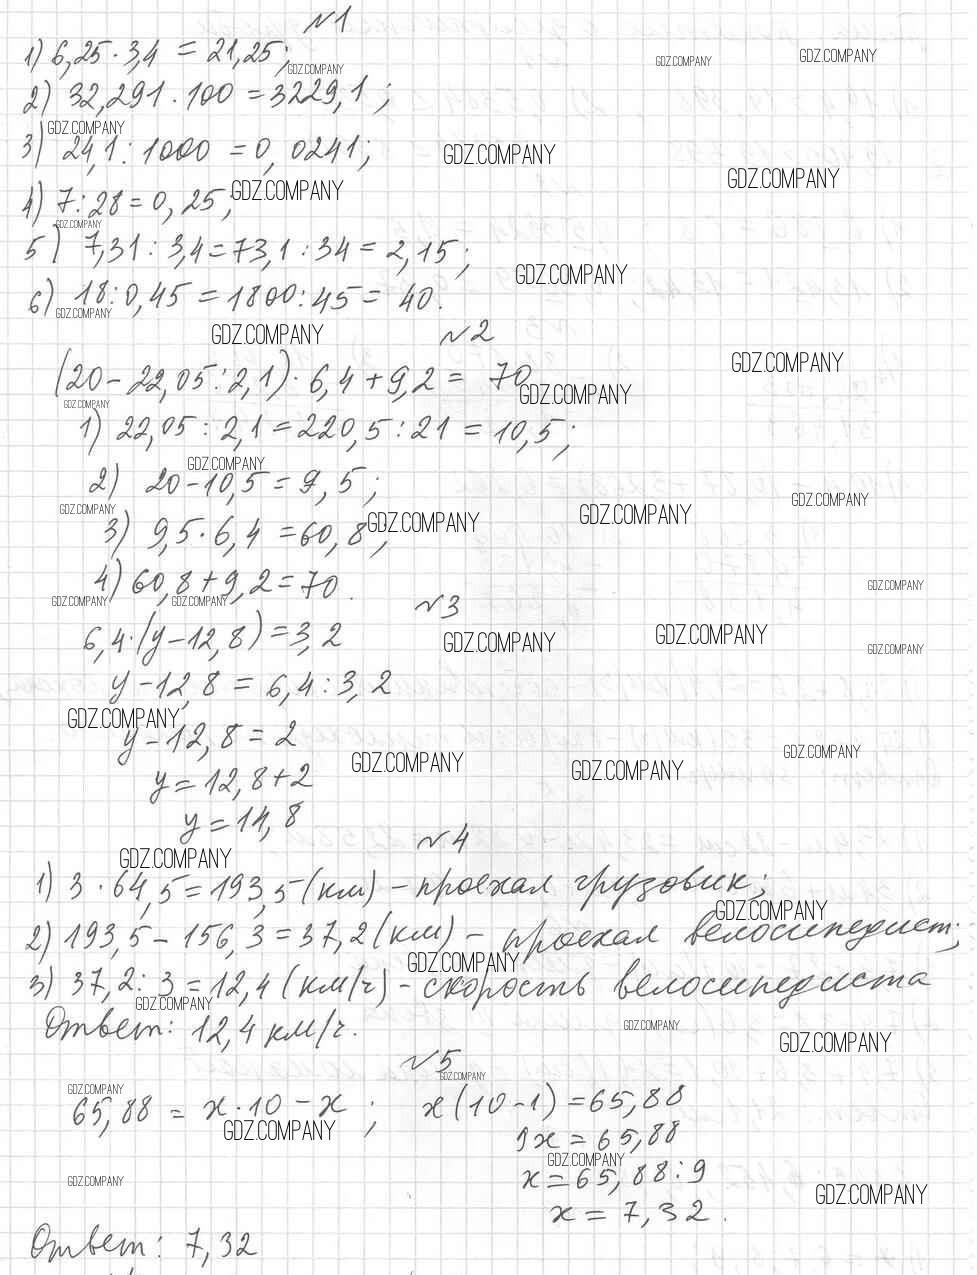 №1
1) 6,25 · 3,4 = 21,25;
2) 32,291 · 100 = 3229,1;
3) 24,1 : 1000 = 0,0241;
4) 7 : 28 = 0,25;
5) 7,31 : 3,4 = 73,1 : 34 = 2,15;
6) 18 : 0,45 = 1800 : 45 = 40.
№2
(20 - 22,05 : 2,1) · 6,4 + 9,2 = 70
1) 22,05 : 2,1 = 220,5 : 21 = 10,5;
2) 20 - 10,5 = 9,5;
3) 9,5 · 6,4 = 60,8;
4) 60,8 + 9,2 = 70.
№3
6,4 · (y - 12,8) = 3,2
y - 12,8 = 6,4 : 3,2
y - 12,8 = 2
y = 12,8 + 2
y = 14,8
№4
1) 3 · 64,5 = 193,5 (км) - проехал грузовик;
2) 193,5 - 156,3 = 37,2 (км) - проехал велосипедист;
3) 37,2 : 3 = 12,4 (км/ч) - скорость велосипедиста
Ответ: 12,4 км/ч.
№5
65,88 = x · 10 - x; x (10 - 1) = 65,88
9x = 65,88
x = 65,88 : 9
x = 7,32.
Ответ: 7,32
GDZ.COMPANY